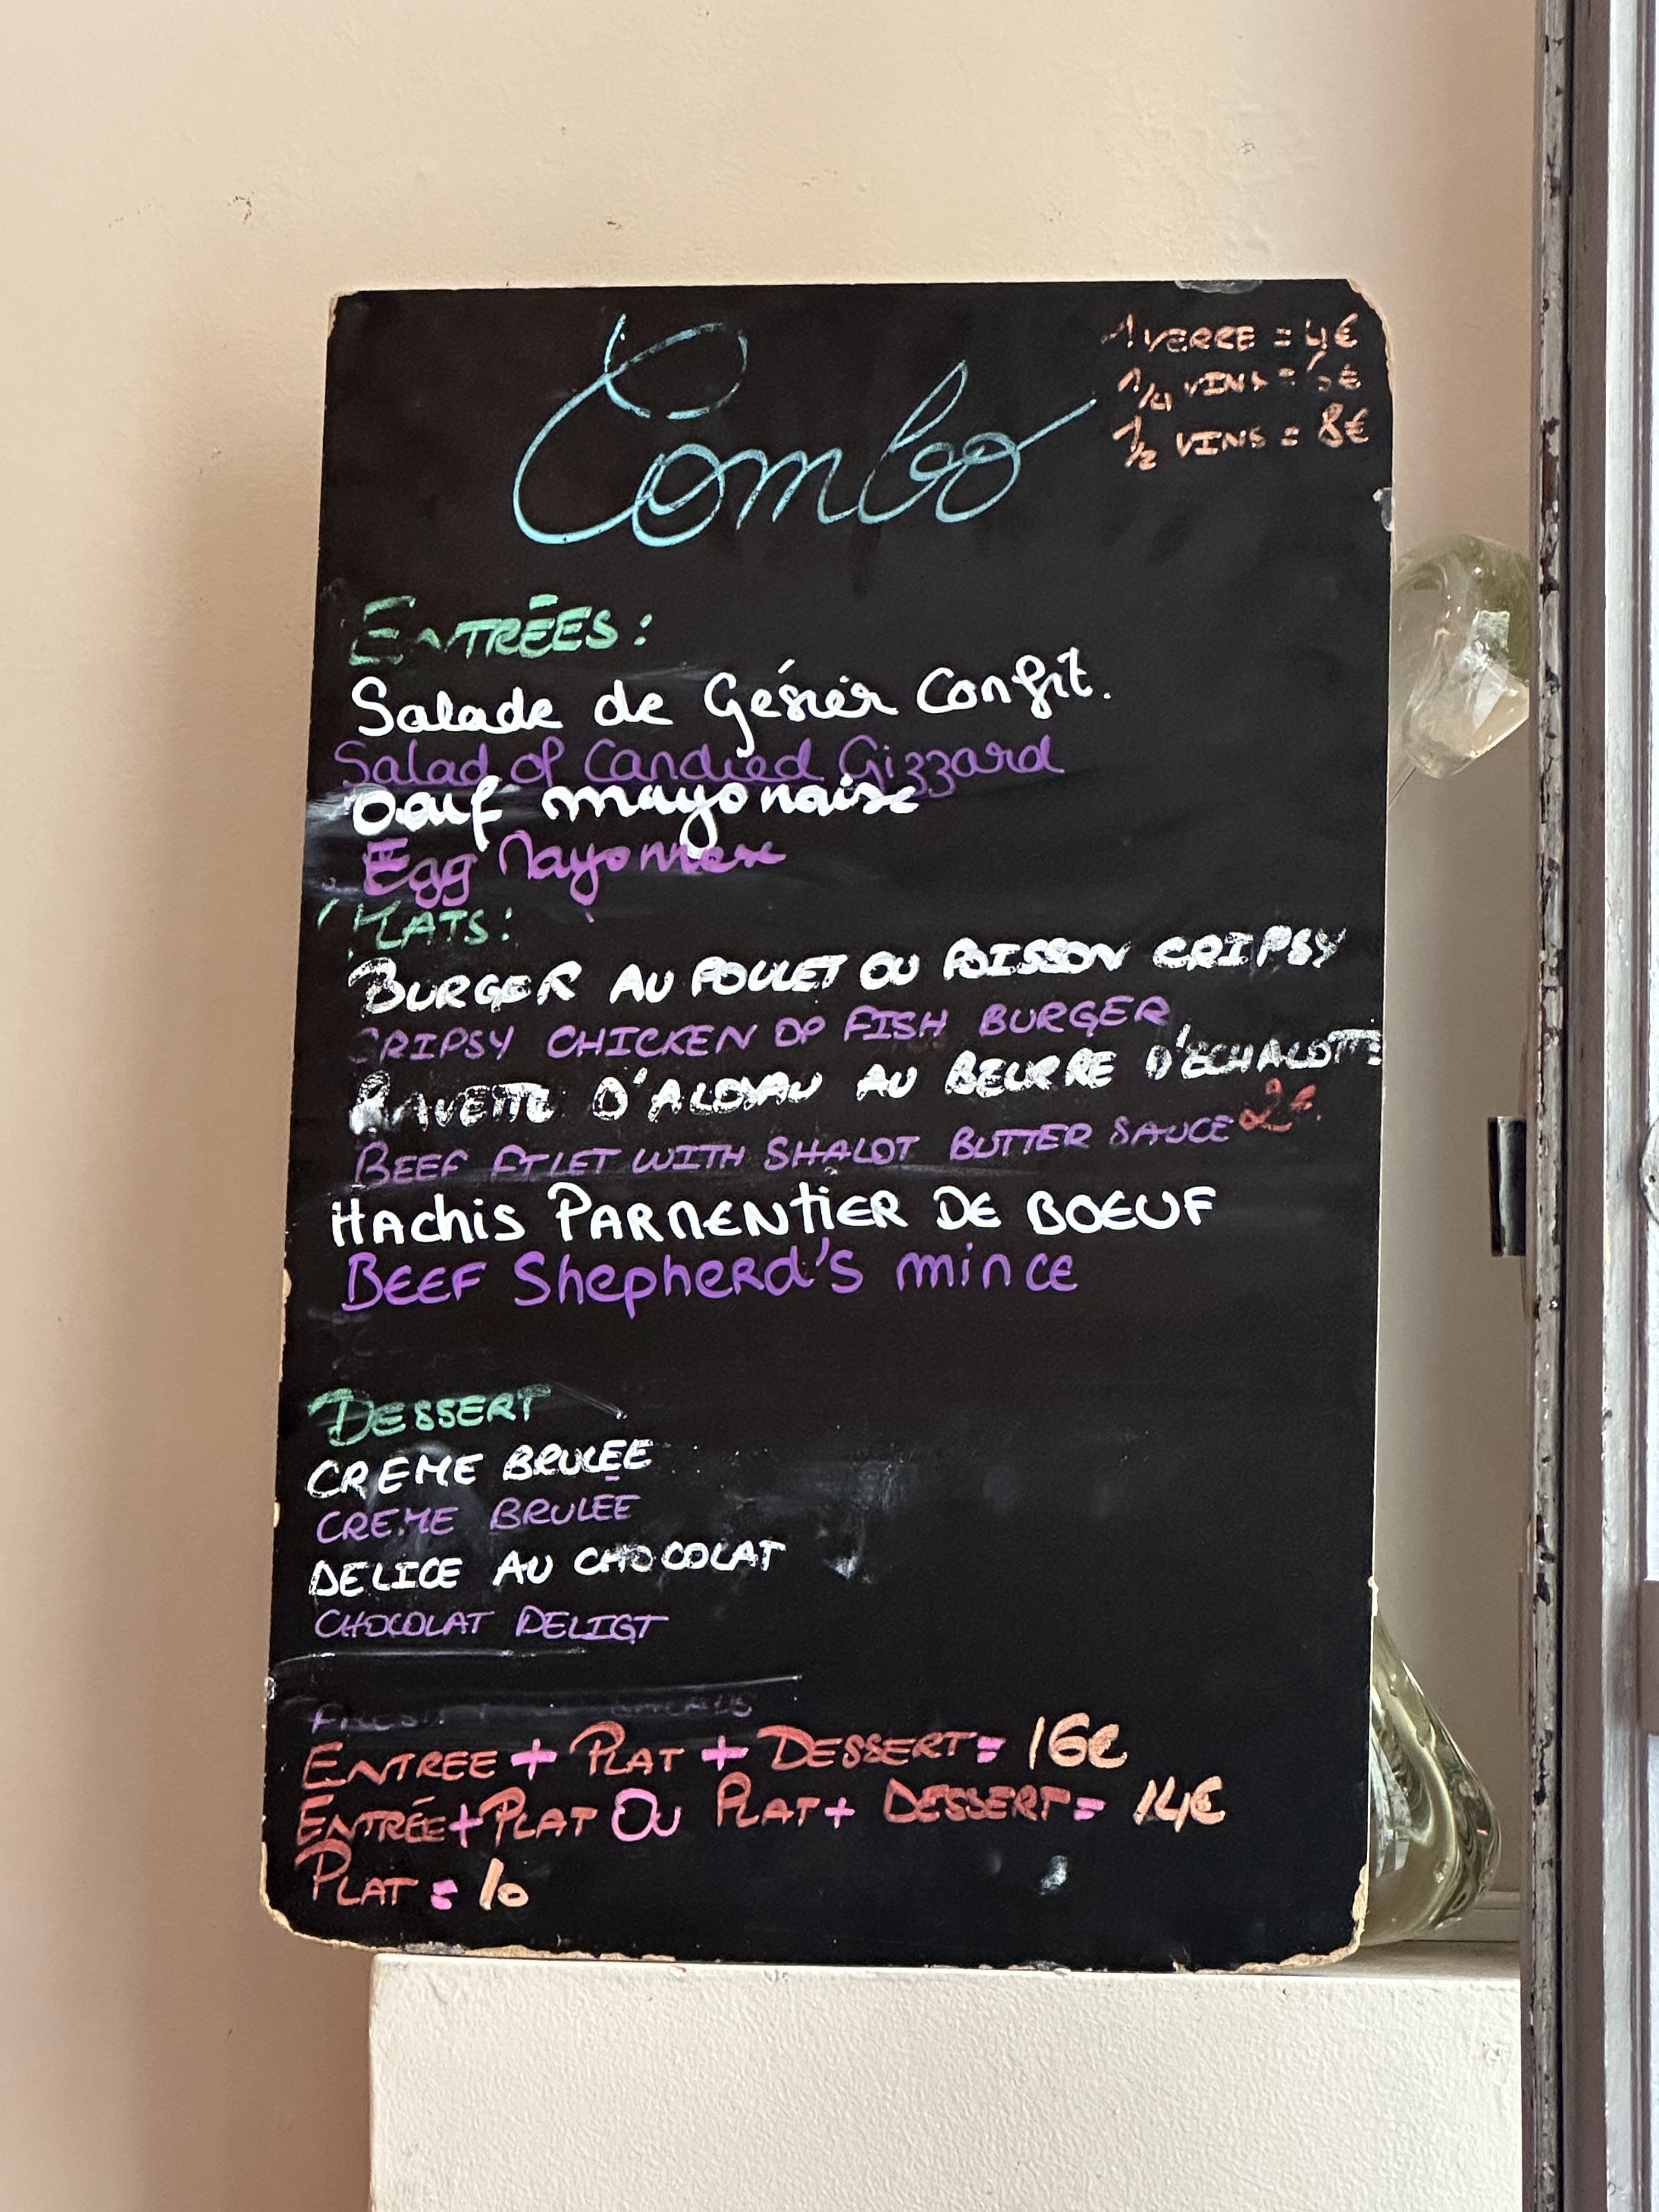 Combo
1 VERRE = 4€
1/4 VINS = 6€
1/2 VINS = 8€
ENTRÉES :
Salade de Gésier Confit.
Salad of Candied Gizzard
Oeuf mayonaise
Egg Mayonnese
PLATS :
BURGER AU POULET OU POISSON CRIPSY
CRIPSY CHICKEN OP FISH BURGER
BAVETTE D'ALOYAU AU BEURRE D'ÉCHALOTTE
BEEF FILET WITH SHALOT BUTTER SAUCE 2€.
HAchis PARMENTiER DE BOEUF
BEEF ShepheRd's mince
DESSERT
CREME BRULÉE
CREME BRULÉE
DELICE AU CHOCOLAT
CHOCOLAT DELIGT
ENTREE + PLAT + DESSERT = 16€
ENTRÉE + PLAT OU PLAT + DESSERT = 14€
PLAT = 10